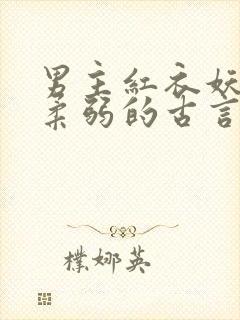 男主紅衣妖
柔弱的古言
樸娜英